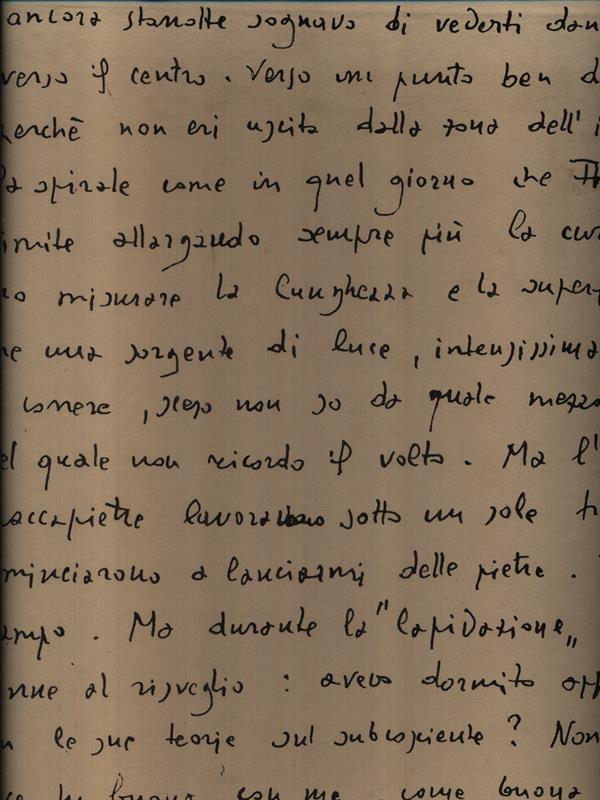 ancora stanotte sognavo di vederti dan
verso il centro. Verso un punto ben d
perchè non eri uscita dalla zona dell' i
la spirale come in quel giorno che
imite allargando sempre più la cur
misurare la lunghezza e la super
re una sorgente di luce, intensissima
correre, sceso non so da quale mezzo
el quale non ricordo il volto. Ma l'
accapietre lavoravano sotto un sole
minciarono a lanciarmi delle pietre.
ampo. Ma durante la "lapidazione„
nne al risveglio: avevo dormito
n le sue teorie sul subcosciente? Non
con me, come buona